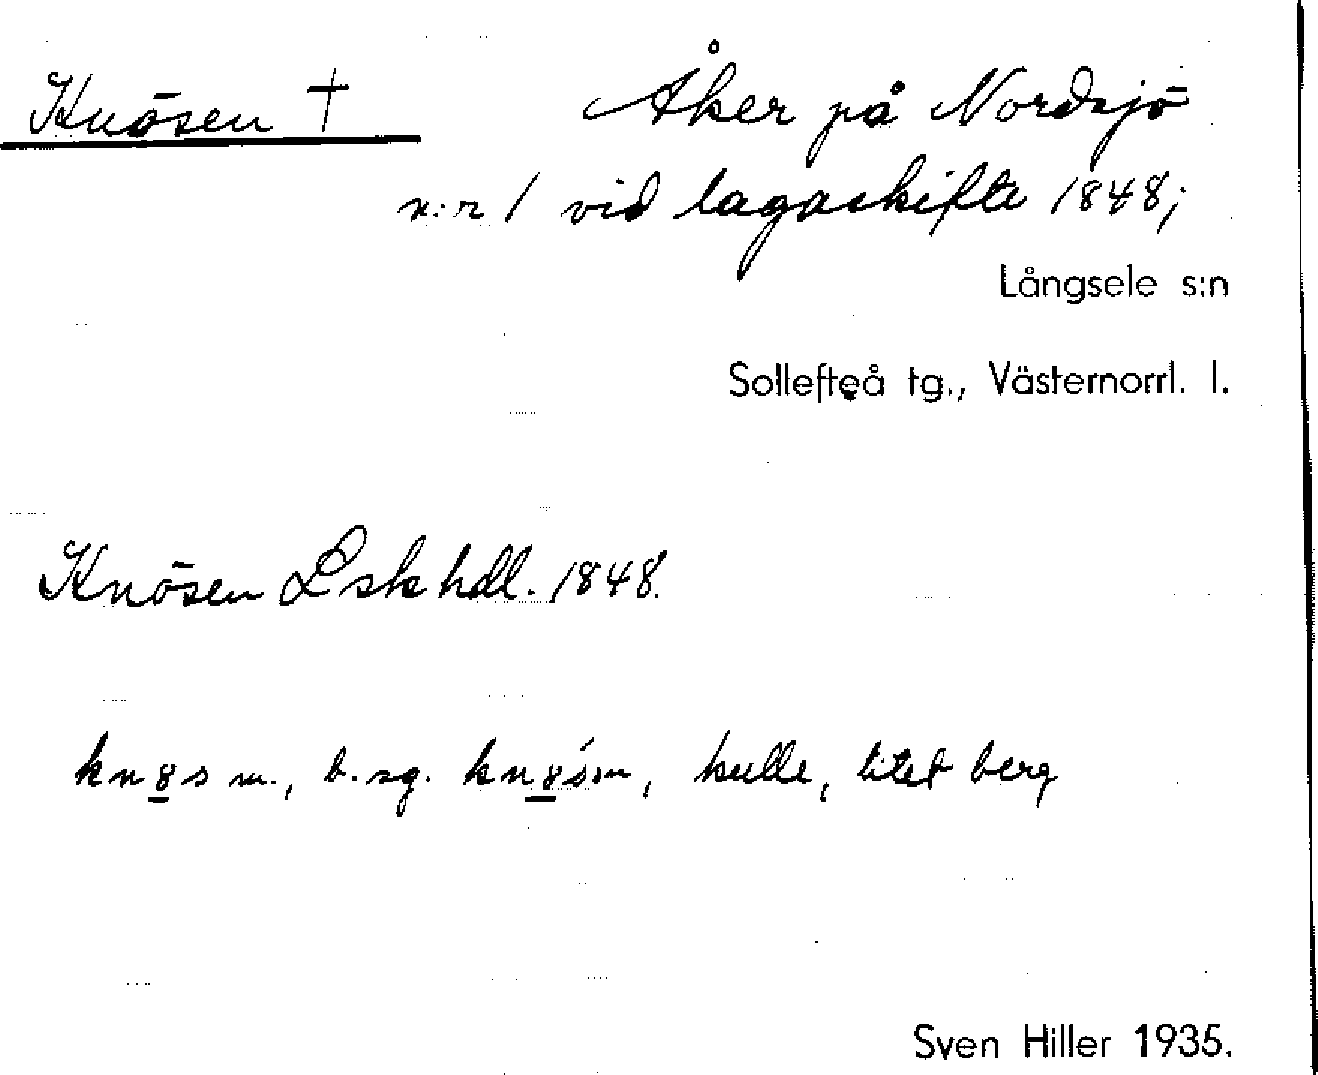 Knösen † Åker på Nordsjö
n:r 1 vid lagaskifte 1848;
Långsele s:n
Sollefteå tg., Västernorrl. l.
Knösen Lskhdl. 1848.
m., b. sg. kulle, litet berg
Sven Hiller 1935.